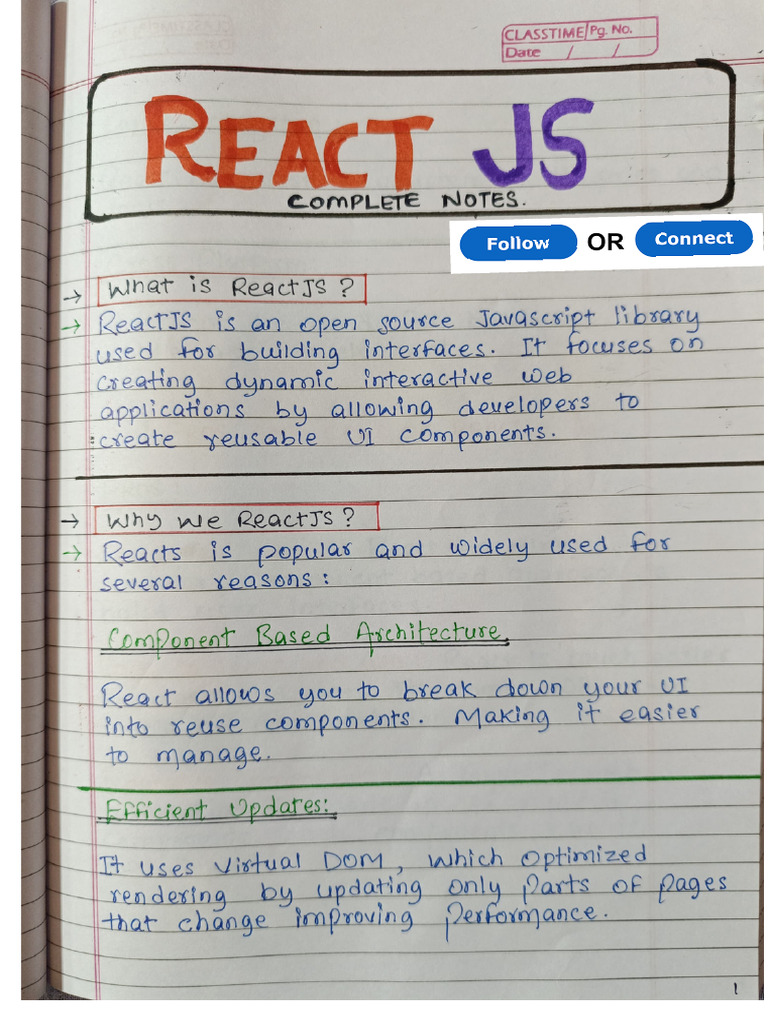 CLASSTIME Pg. No.
Date / /
REACT JS
COMPLETE NOTES.
Follow OR Connect
→ What is ReactJS?
→ ReactJS is an open source Javascript library
used for building interfaces. It focuses on
creating dynamic interactive web
applications by allowing developers to
create reusable UI components.
→ Why we ReactJS?
→ Reacts is popular and widely used for
several reasons:
Component Based Architecture.
React allows you to break down your UI
into reuse components. Making it easier
to manage.
Efficient Updates:
It uses Virtual DOM, which optimized
rendering by updating only parts of pages
that change improving performance.
1